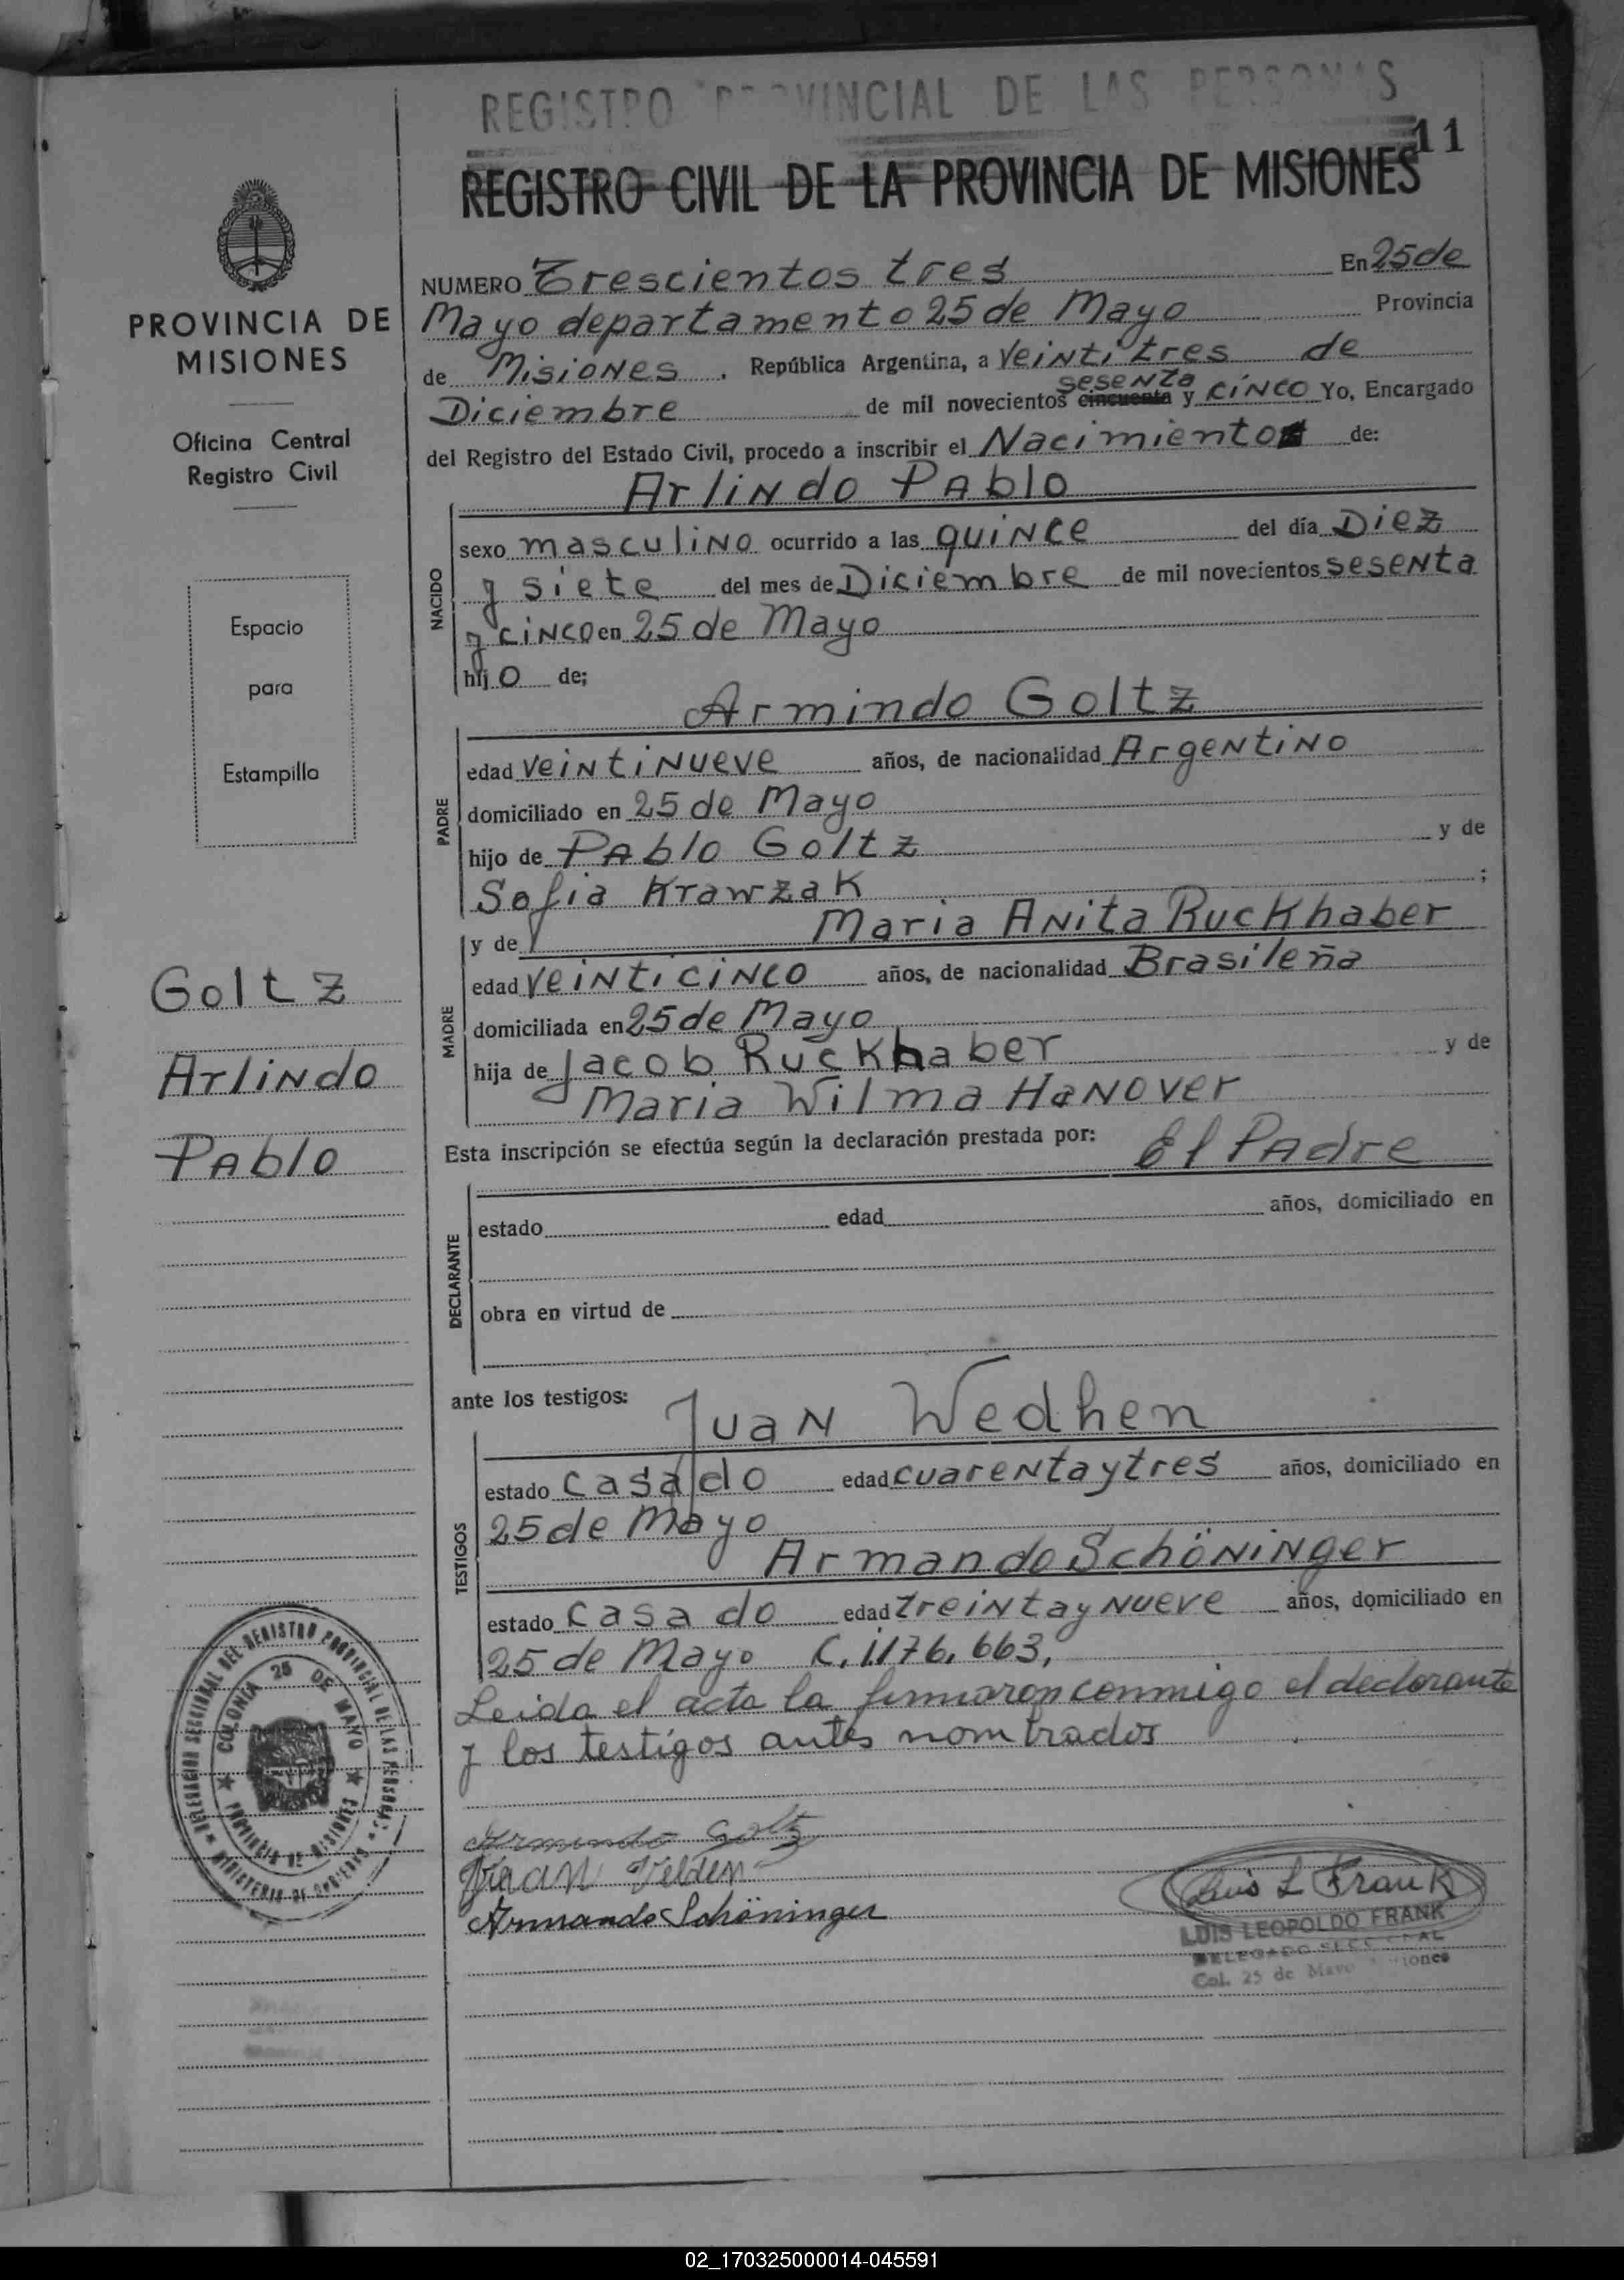 REGISTRO PROVINCIAL DE LAS PERSONAS
11
REGISTRO CIVIL DE LA PROVINCIA DE MISIONES
PROVINCIA DE
MISIONES
Oficina Central
Registro Civil
Espacio
para
Estampilla
Goltz
Arlindo
Pablo
NUMERO Trescientos tres En 25 de
Mayo departamento 25 de Mayo Provincia
de Misiones . República Argentina, a Veintitres de
sesenta
Diciembre de mil novecientos cincuenta y cinco Yo, Encargado
del Registro del Estado Civil, procedo a inscribir el Nacimiento de:
Arlindo Pablo
NACIDO
sexo masculino ocurrido a las quince del día Diez
y siete del mes de Diciembre de mil novecientos sesenta
y cinco en 25 de Mayo
hijo de;
Armindo Goltz
PADRE
edad veintinueve años, de nacionalidad Argentino
domiciliado en 25 de Mayo
hijo de Pablo Goltz y de
Sofia Krawzak ;
y de Maria Anita Ruckhaber
MADRE
edad veinticinco años, de nacionalidad Brasileña
domiciliada en 25 de Mayo
hija de Jacob Ruckhaber y de
Maria Wilma Hanover
Esta inscripción se efectúa según la declaración prestada por: El Padre
DECLARANTE
estado edad años, domiciliado en
obra en virtud de
ante los testigos: Juan Wedhen
TESTIGOS
estado casado edad cuarenta y tres años, domiciliado en
25 de Mayo
Armando Schöninger
estado casado edad treinta y nueve años, domiciliado en
25 de Mayo C. 1.176.663,
Leida el acta la firmaron conmigo el declarante
y los testigos antes nombrados
Armindo Goltz
Juan Velden
Armando Schöninger
Luis L Frank
LUIS LEOPOLDO FRANK
DELEGADO SECCIONAL
Col. 25 de Mayo Misiones
DELEGACION SECCIONAL DEL REGISTRO PROVINCIAL DE LAS PERSONAS
COLONIA 25 DE MAYO
PROVINCIA DE MISIONES
MINISTERIO DE GOBIERNO
02_170325000014-045591